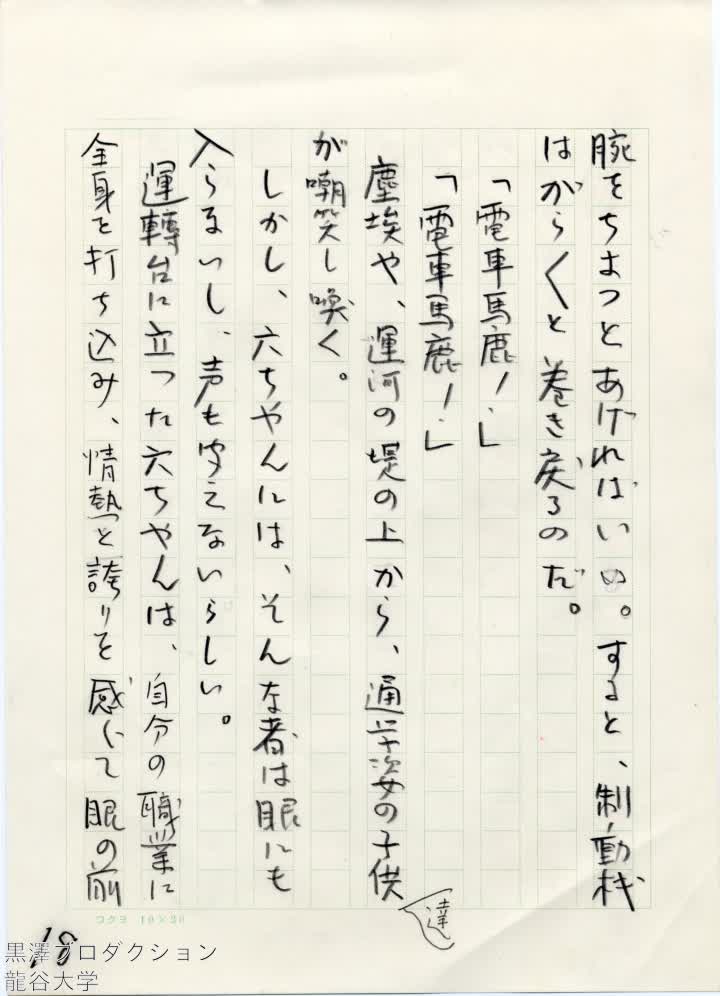 腕をちょっとあげればいい。すると、制動机
はがらくと巻き戻るのだ。
「電車馬鹿！」
「電車馬鹿！」
塵埃や、運河の堤の上から、通学姿の子供達
が嘲笑し喚く。
しかし、六ちゃんには、そんな者は眼にも
入らないし、声も聞えないらしい。
運轉台に立った六ちゃんは、自分の職業に
全身を打ち込み、情熱と誇りを感じて眼の前
コクヨ 10×20
18
黒澤プロダクション
龍谷大学